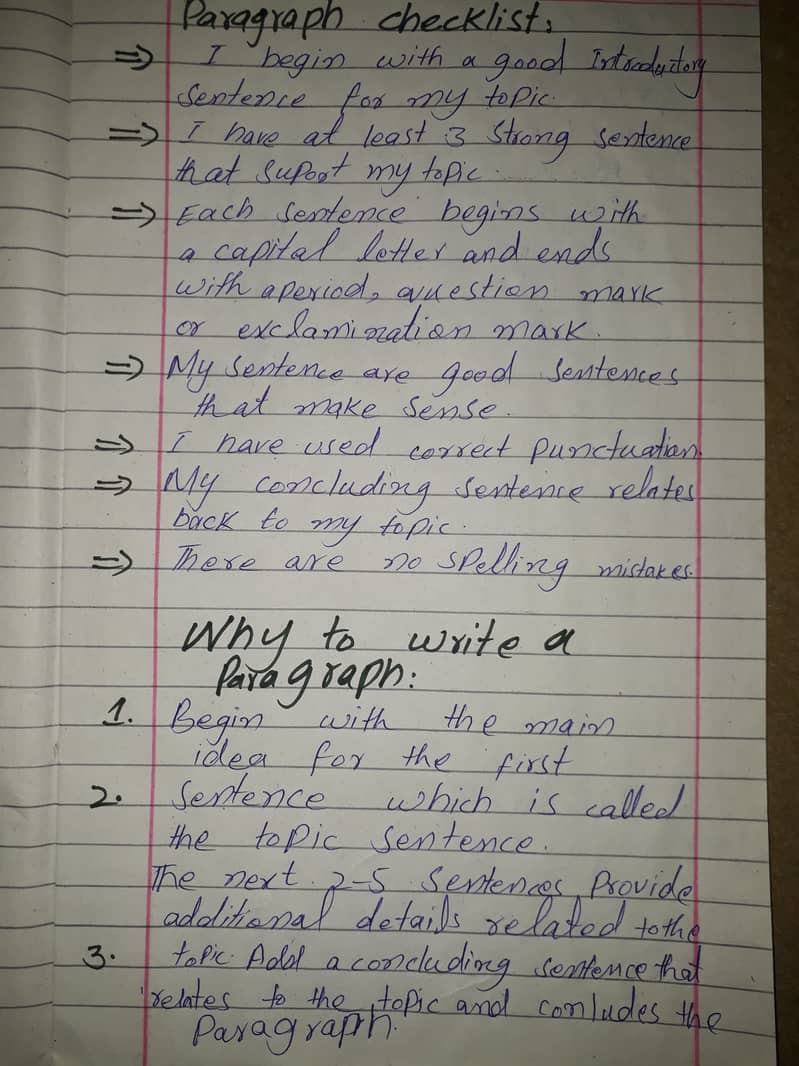 Paragraph checklist:
⇒ I begin with a good Introductory
Sentence for my topic.
⇒ I have at least 3 Strong Sentence
that Supoot my topic.
⇒ Each Sentence begins with
a capital letter and ends
with a period, question mark
or exclamination mark.
⇒ My Sentence are good Sentences
that make Sense.
⇒ I have used correct Punctuation.
⇒ My concluding Sentence relates
back to my topic.
⇒ There are no spelling mistakes.
Why to write a
Paragraph:
1. Begin with the main
idea for the first
2. Sentence which is called
the topic Sentence.
The next 2-5 Sentences Provide
additional details related to the
3. topic. Add a concluding Sentence that
relates to the topic and conludes the
Paragraph.